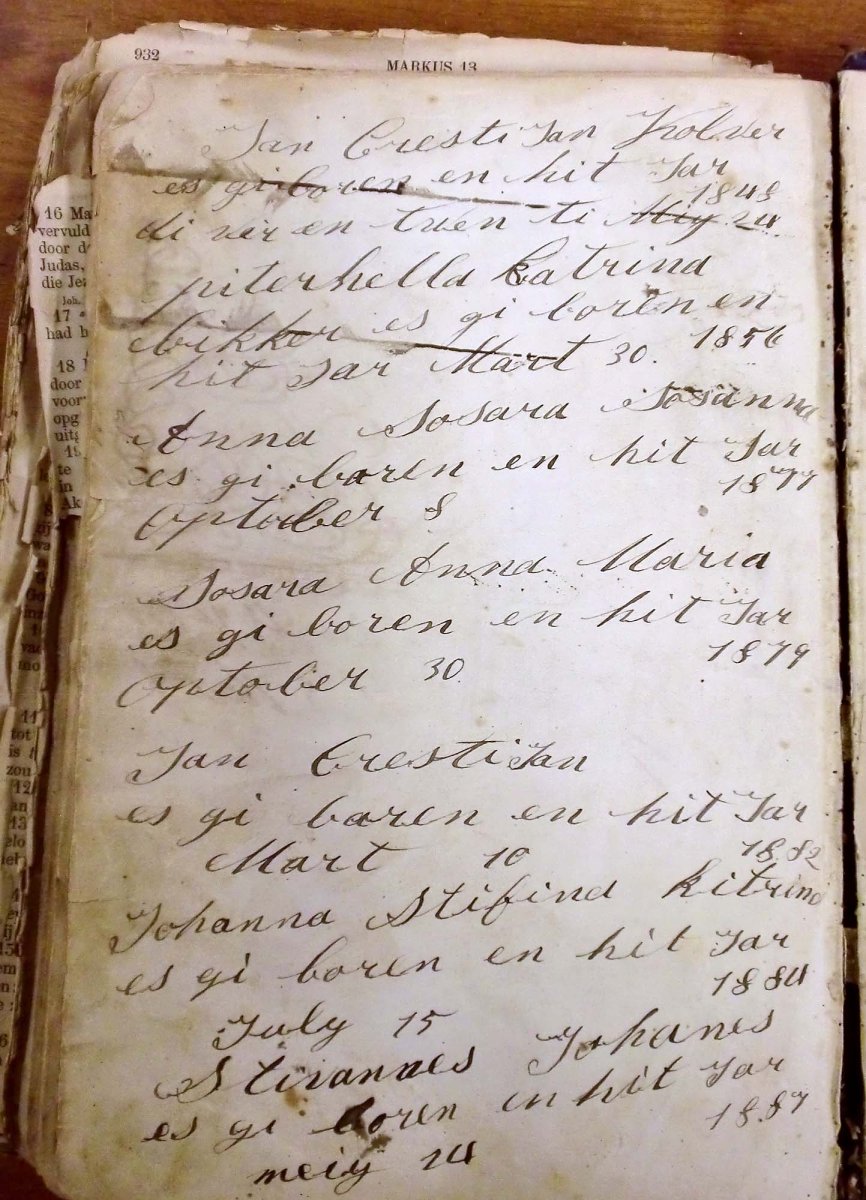 932
MARKUS 13
Jan CrestiJan Kolver
es gi boren en hit Jar
1848
di vir en twen ti Mey 24
piterhella Catrina
bikker es gi boren en
hit Jar Mart 30. 1856
Anna Sosara Sosanna
es gi boren en hit Jar
1877
Optober 8
Sosara Anna Maria
es gi boren en hit Jar
1879
Optober 30
Jan CrestiJan
es gi boren en hit Jar
Mart 10 1882
Johanna Stifina Kitrina
es gi boren en hit Jar
1884
July 15
Johanes
es gi boren en hit Jar
1887
meiy 24
16 Ma
vervuld
door d
Judas,
die Je
Joh.
17
had h
18
door
voor
opg
uitg
19
te
in
Ak